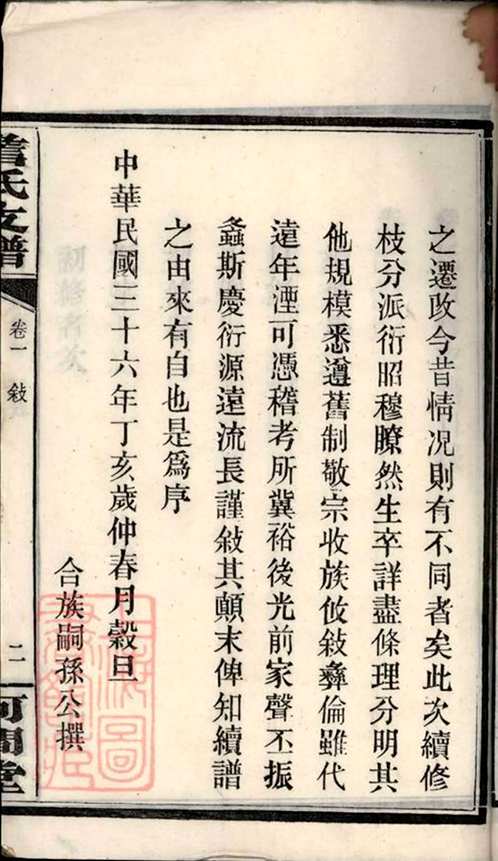 之遷改今昔情況則有不同者矣此次續修
枝分派衍昭穆瞭然生卒詳盡條理分明其
他規模悉遵舊制敬宗收族攸敍彝倫雖代
遠年湮可憑稽考所冀裕後光前家聲丕振
螽斯慶衍源遠流長謹敍其顛末俾知續譜
之由來有自也是爲序
中華民國三十六年丁亥歲仲春月穀旦
合族嗣孫公撰
氏支譜
卷一
敍
二
河間堂